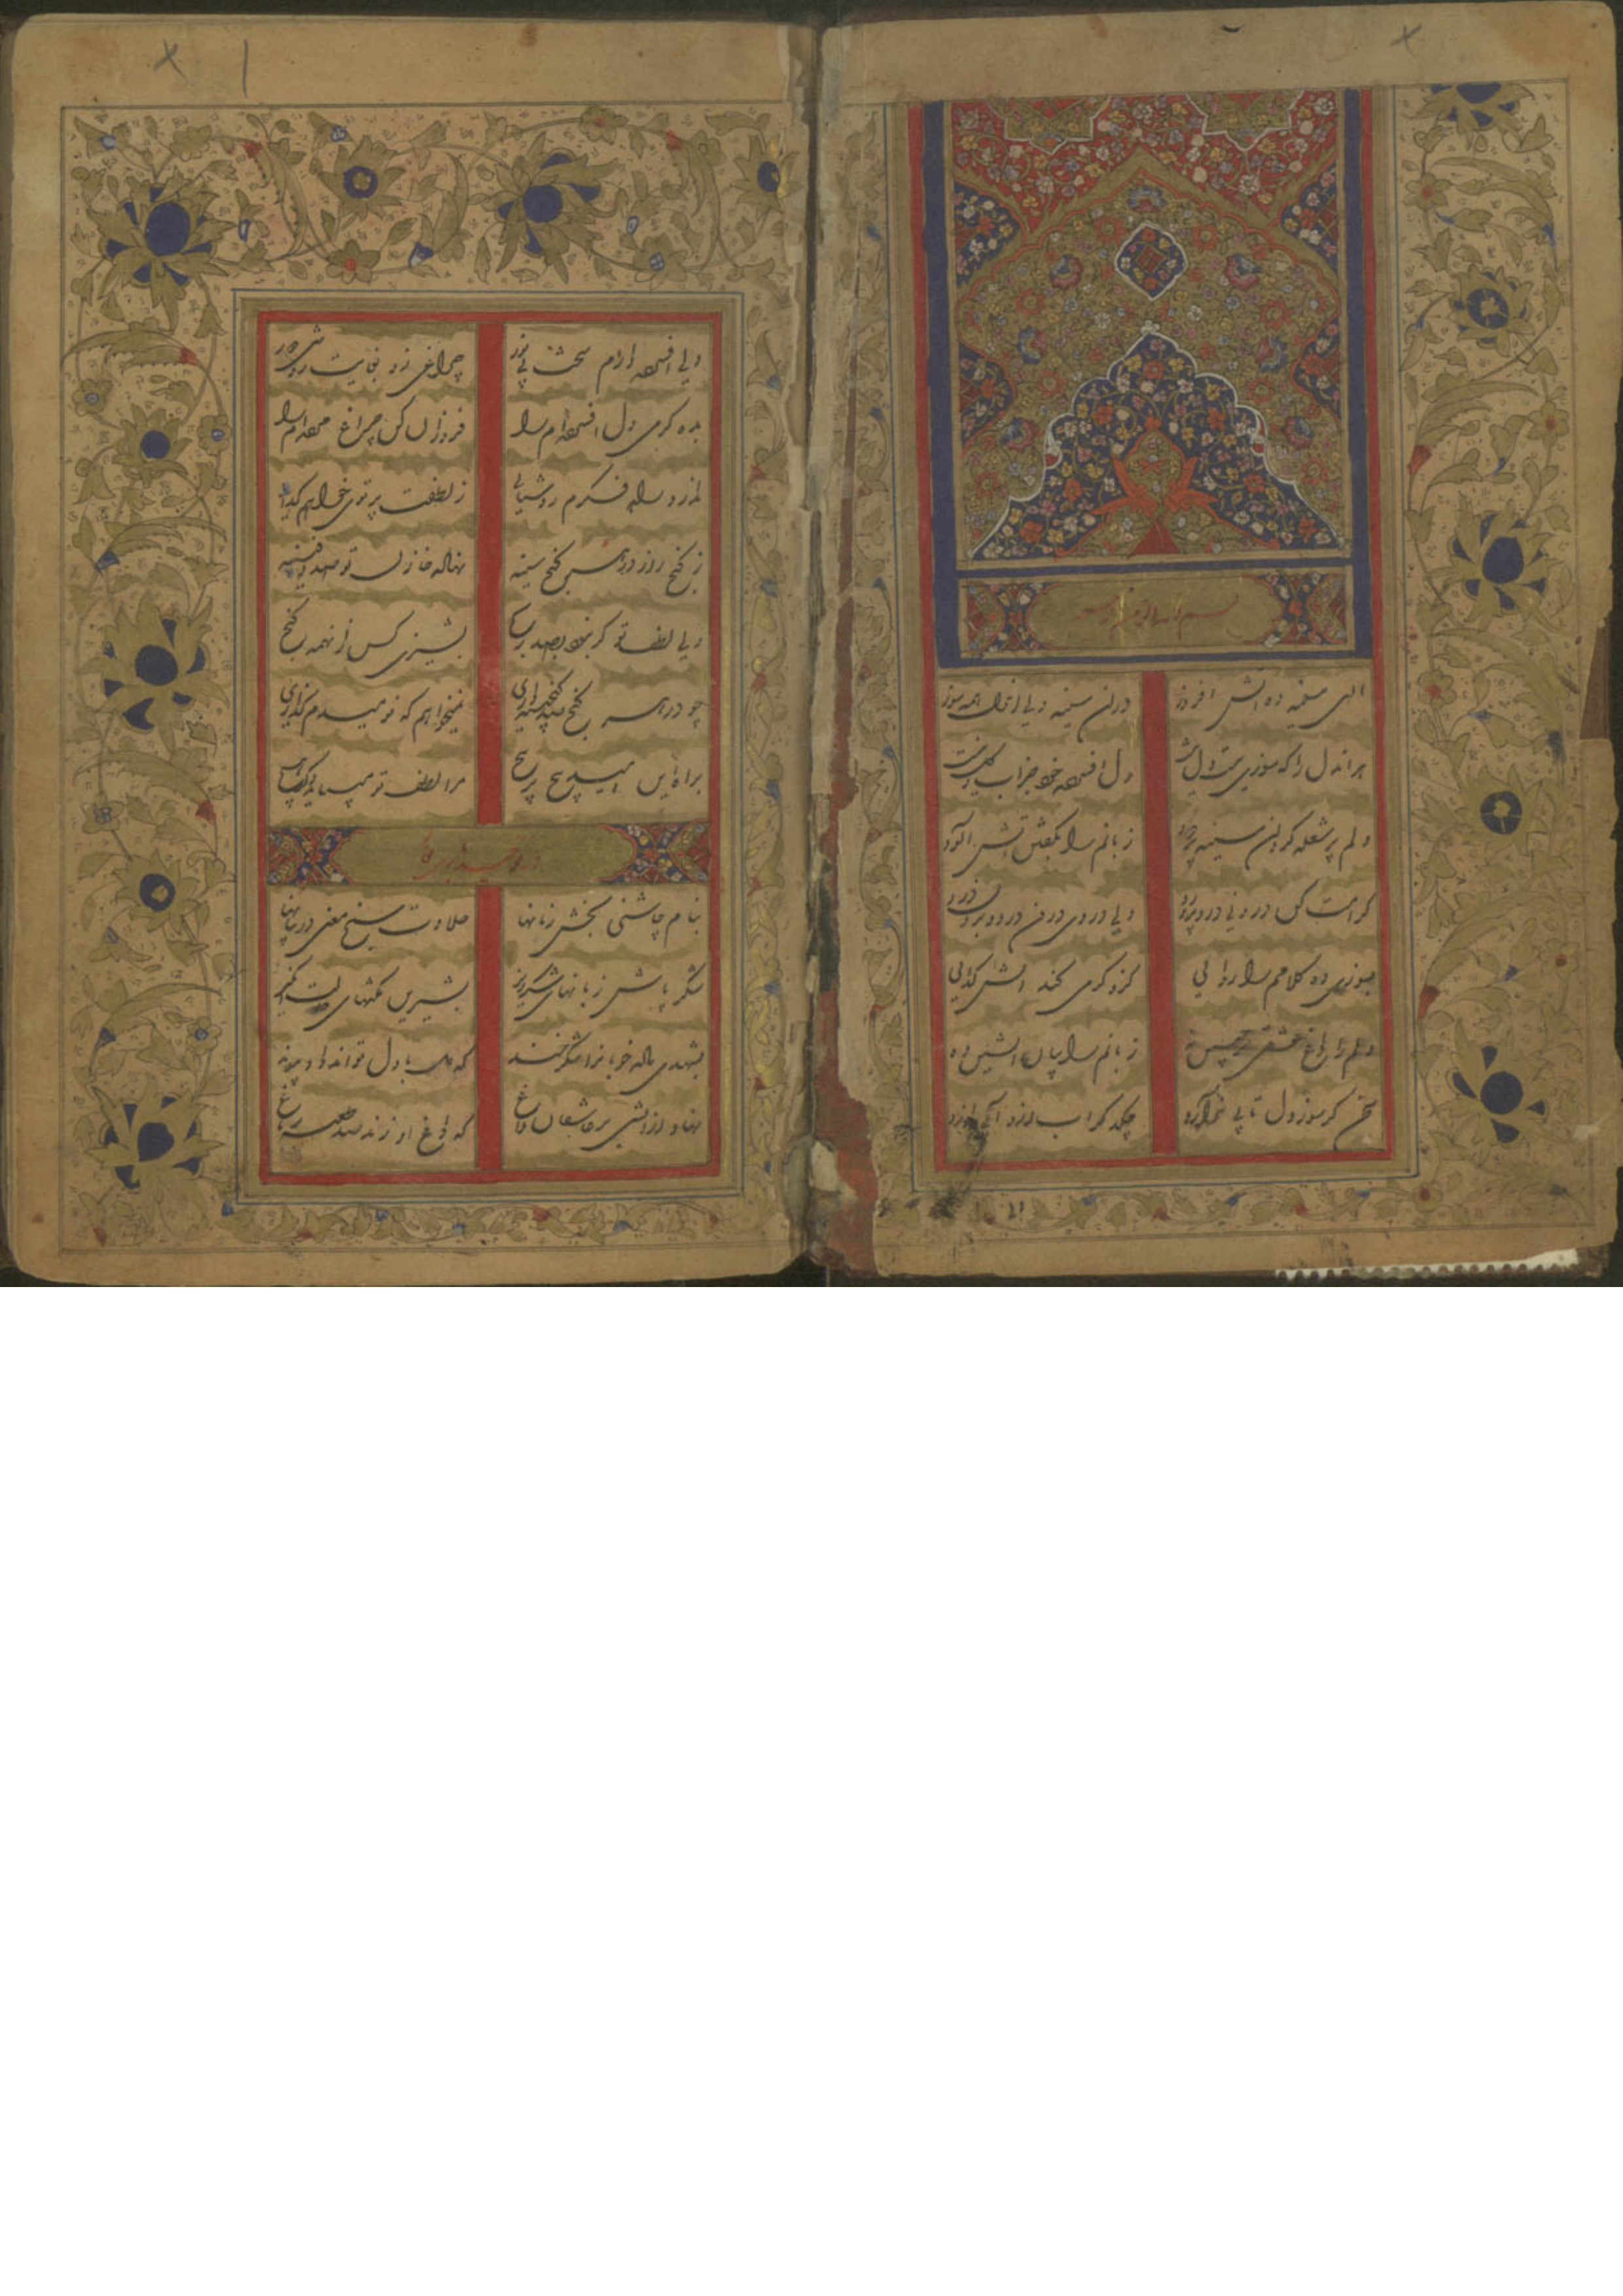 بسم الله الرحمن الرحیم
الهی سینه ده آتش افروز
در آن سینه دلی وان دل همه سوز
هر آن دل را که سوزی نیست دل نیست
دل افسرده خود جز آب و گل نیست
دلم پر شعله گردان سینه پر دود
زبانم را بگفتن آتش آلود
کرامت کن درونی درد پرورد
دلی در وی درون درد و برون درد
بسوزی ده کلامم را روایی
کزو گرمی کند آتش گدایی
دلم را داغ عشقی بر جبین نه
زبانم را بیان آتشین ده
سخن کز سوز دل تابی ندارد
چکد گر آب ازو آبی ندارد
دلی افسرده دارم سخت بی نور
چراغی زو بغایت روشنی دور
بده گرمی دل افسرده‌ام را
فروزان کن چراغ مرده‌ام را
ندارد راه فکرم روشنایی
ز لطفت پرتوی خواهم گدایی
ز گنج راز در هر کنج سینه
نهاده خازن تو صد دفینه
ولی لطف تو گر نبود بصد رنج
پشیزی کس نیابد زانهمه گنج
چو در هر کنج صد گنجینه داری
نمیخواهم که نومیدم گذاری
براه این امید پیچ در پیچ
مرا لطف تو میباید دگر هیچ
در توحید باری تعالی
بنام چاشنی بخش زبانها
حلاوت سنج معنی در بیانها
شکر پاش زبانهای شکرریز
بشیرین نکتهای حالت انگیز
بشهدی داده خوبانرا شکرخند
که دل با دل تواند داد پیوند
نهاد از آتشی بر عاشقان داغ
که داغ او زند صد طعنه بر باغ